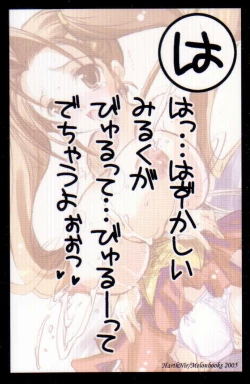 は
はっ…はずかしい
みるくが
びゅるって…びゅるーって
でちゃうよぉぉっ♥
HarihNir/Melonbooks 2005